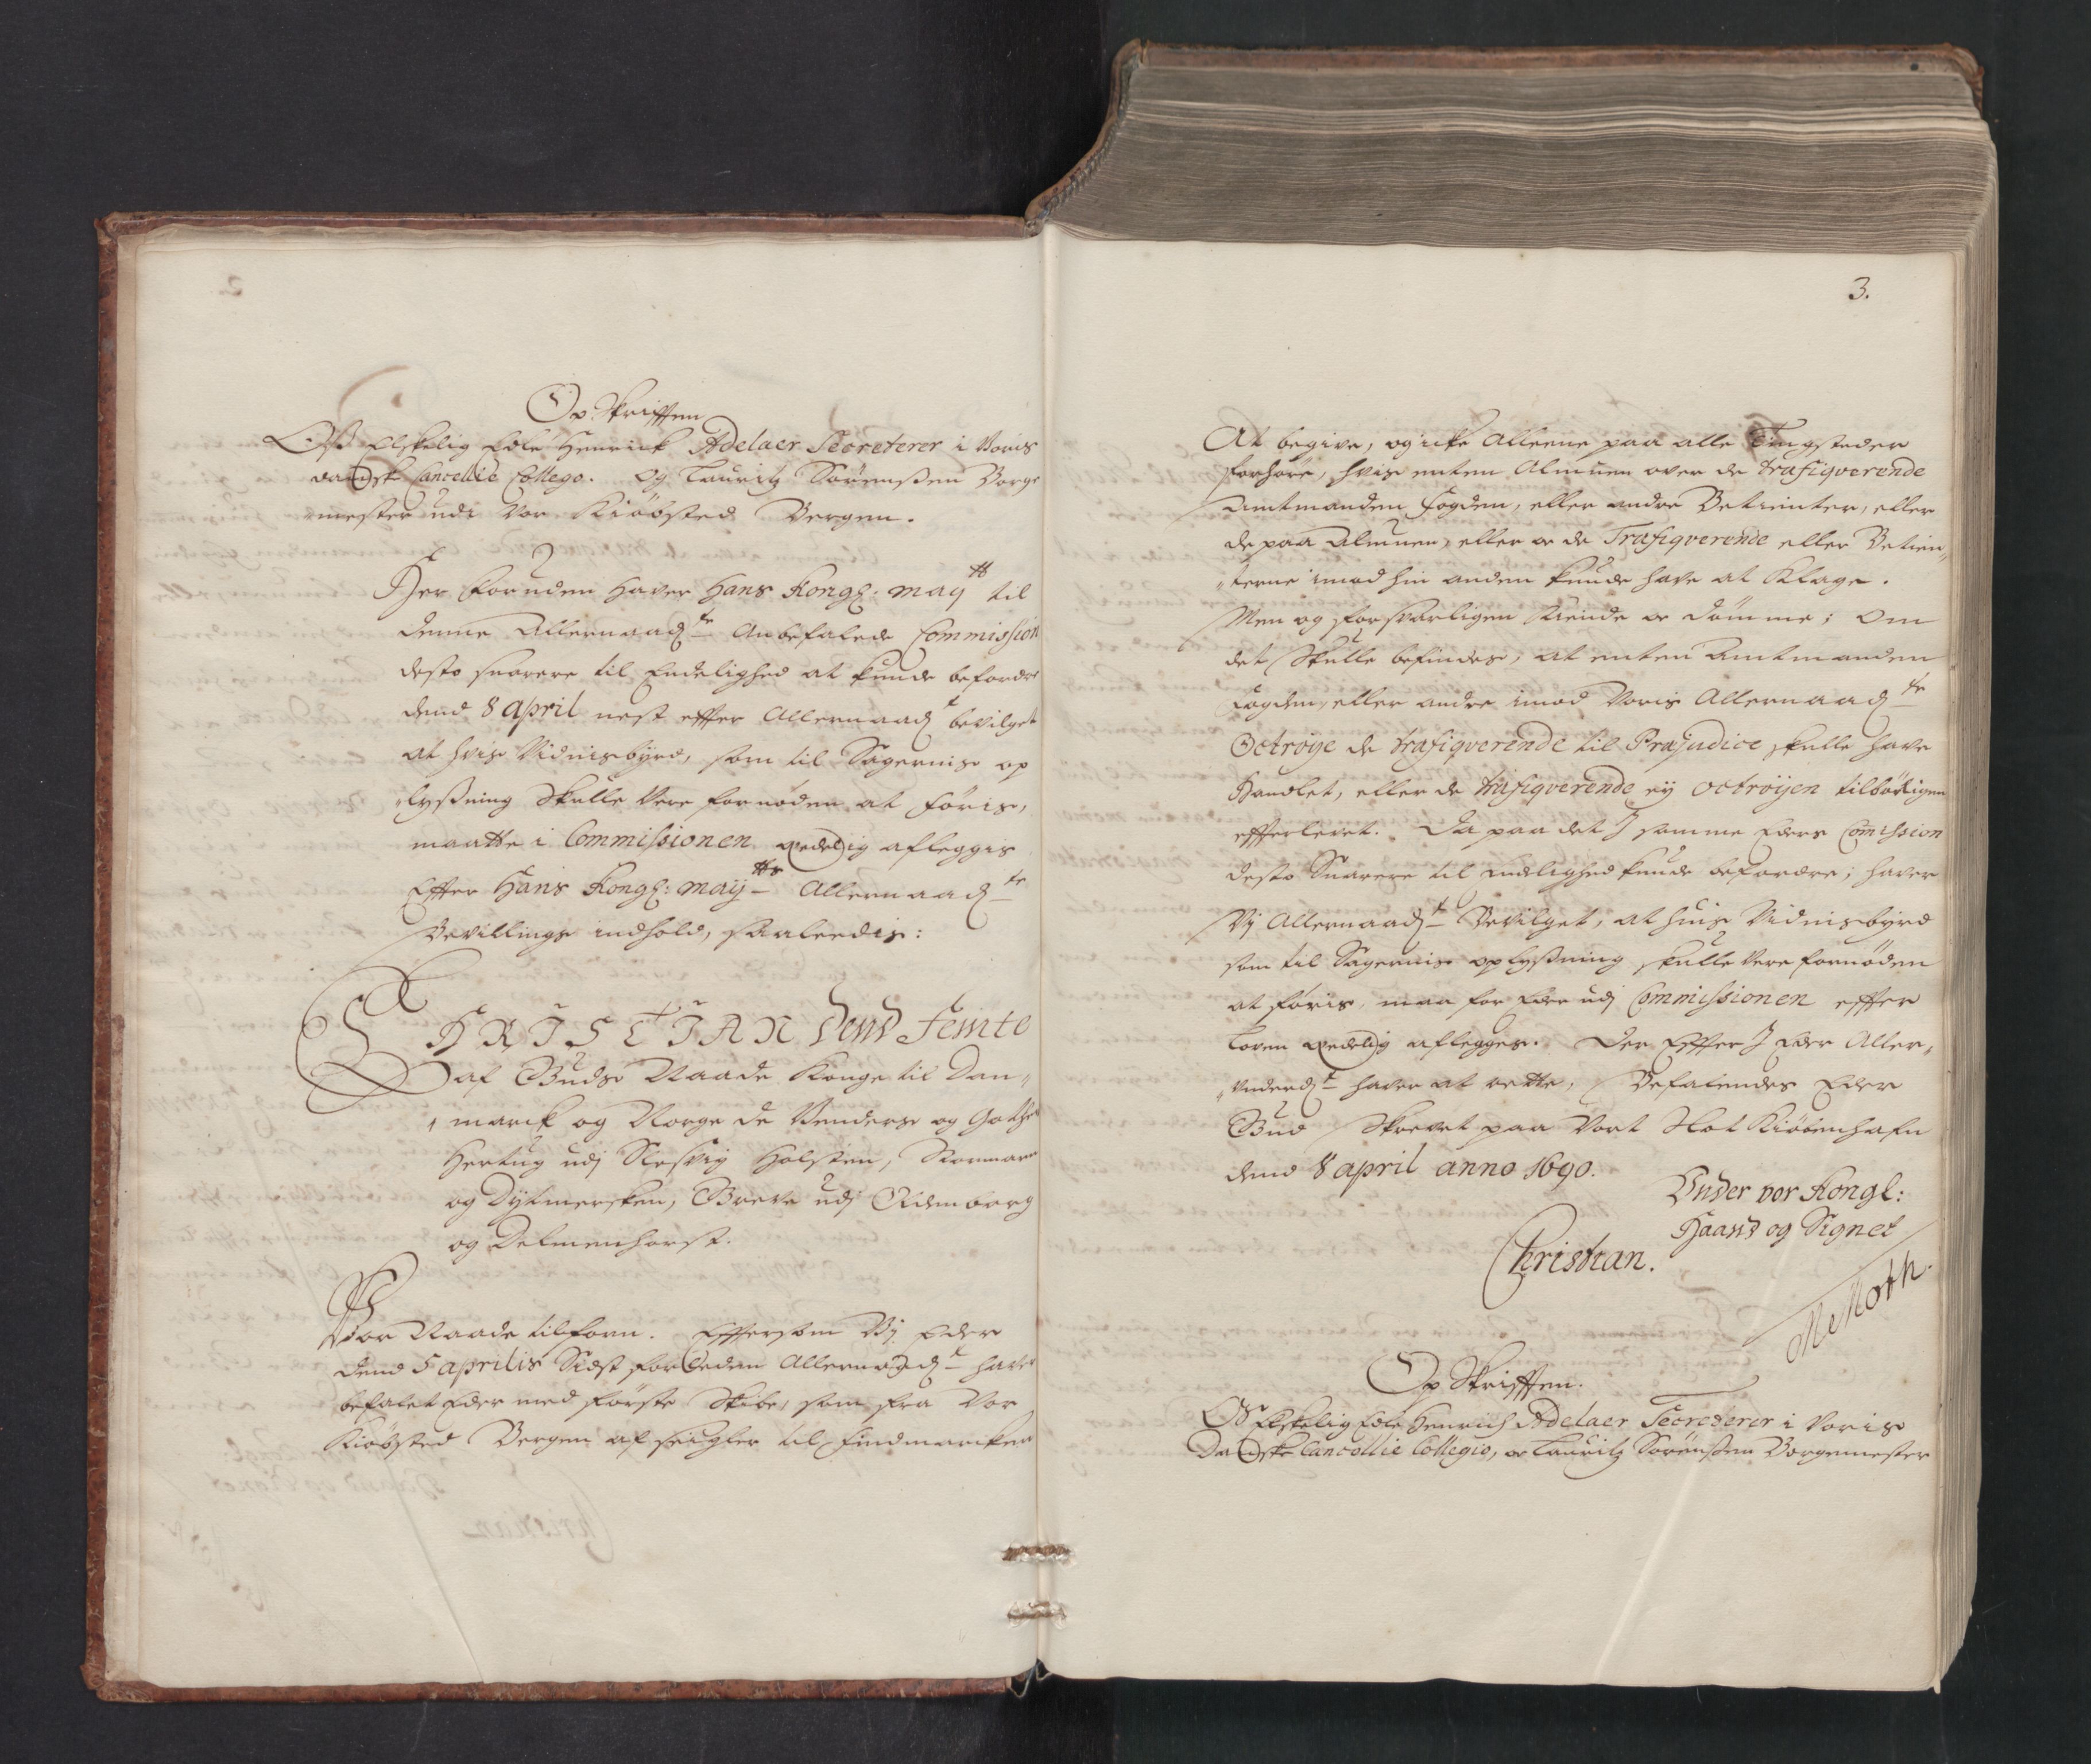 Op Skrifften
Oß Elskelig Edle Henrick Adelaer Secreterer i Voris
dansk Cancellie Collego. Og Lauritz Sörenßen Borge
mester udi Vor Kiöbsted Bergen.
Her foruden haver Hans Kongl: May tt til
denne Allernaad ste Anbefalede Commission
desto snarere til Endelighed at kunde befordre
dend 8 april nest effter Allernaad t bevilget
at hvis Vidnisbÿrd, som til Sagernis op
lyßning Skulle Vere fornöden at föris,
maatte i Commissionen Edelig afleggis
Effter Hans Kongl: Maÿ tts Allernaad te
Bevillings indhold, saaleedis:
CHRISTIAN Dend Femte
af Guds Naade Konge til Dan„
„marck og Norge de Venders og Gothers
Hertug udj Sleßvig Holsten, Stormarn
og Dÿtmersken, Greve udj Oldenborg
og Delmenhorst.
Vor Naade tilforn. Efftersom Vj Eder
dend 5 aprilis Sidst forleden Allernaad t haver
befalet Eder med förste Skibe, som fra Vor
Kiöbsted Bergen afseigler til Findmarcken
3.
At begive, og icke Alleene paa alle Tingsteder
forhöre, hvis enten Almuen over de trafiqverende
Amtmanden Fogden, eller andre Betienter, eller
de paa Almuen, eller og de Trafiqverende eller Betien„
„terne imod hin anden kunde have at Klage.
Men og forsvarligen Kiende og dömme; Om
det Skulle befindes, at enten Amtmanden
Fogden, eller andre imod Voris Allernaad te
Octroye de trafiqverende til Præjudice skulle have
Handlet, eller de trafiqverende eÿ octroÿen tilbörligen
effterleret. Da paa det I samme Eders Comission
desto Snarere til endelighed kunde befordre; haver
Vj Allernaad t Bevilget, at huis Vidnisbÿrd
som til Sagernis oplyßning skulle Vere fornöden
at föris, maa for Eder udj Commissionen effter
Loven Edelig aflegges. Der Effter I Eder Aller„
„underd t haver at rette, Befalendes Eder
Gud Skrevet paa Vort Slot Kiöbenhafn
dend 8 april anno 1690.
Under vor Kongl:
Haand og Signet
Christian.
M Moth.
Op Skrifften.
Os Elskelig Edle Henrich Adelaer Secreterer i Voris
Danske Cancellie Collegio, og Lauritz Sörenßen Borgemester